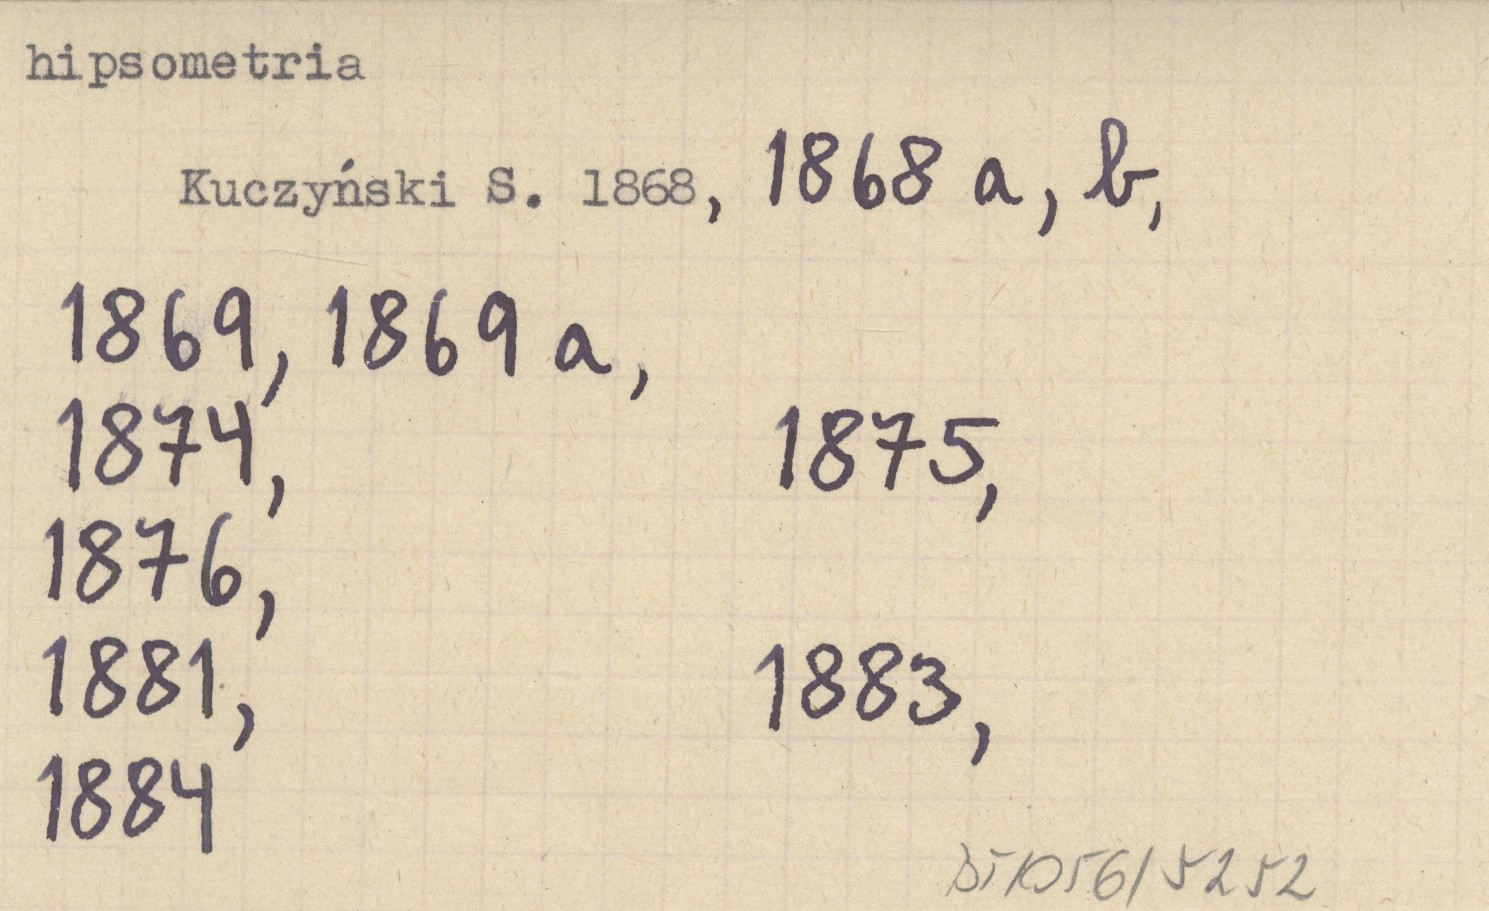 hipsometria
Kuczyński S. 1868, 1868 a, b,
1869, 1869 a,
1874, 1875,
1876,
1881, 1883,
1884